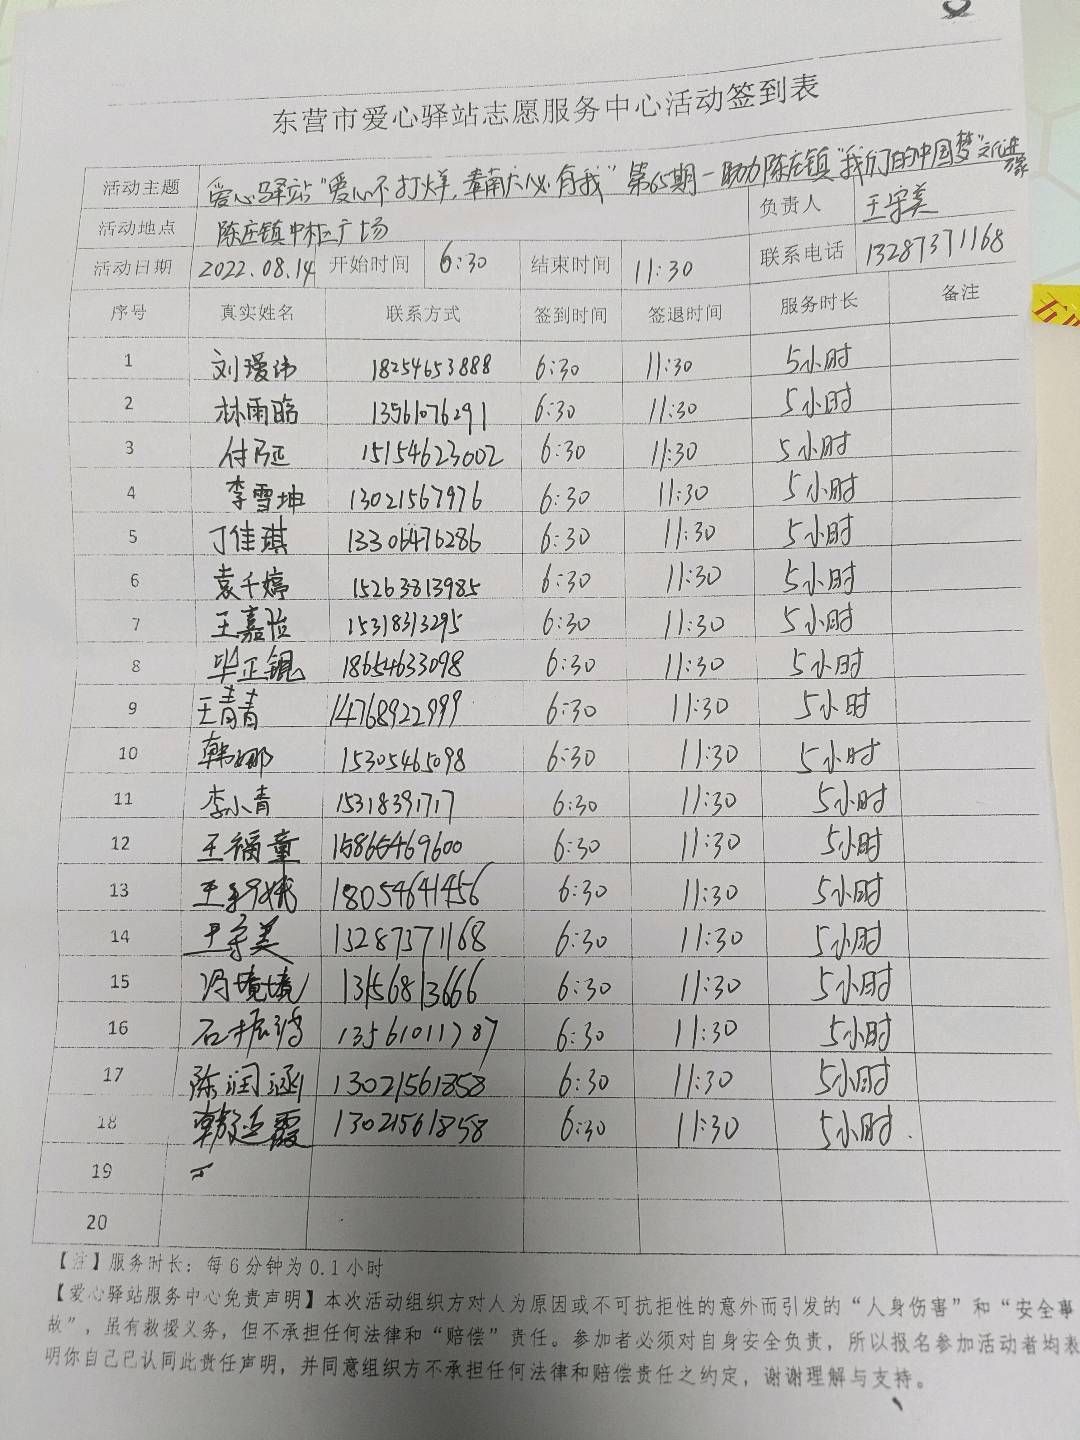 东营市爱心驿站志愿服务中心活动签到表
活动主题 爱心驿站“爱心不打烊,奉献大必有我”第65期一助力陈庄镇“我们的中国梦”文化进万家
活动地点 陈庄镇中心广场 负责人 王守美
活动日期 2022.08.14 开始时间 6:30 结束时间 11:30 联系电话 13287371168
序号 真实姓名 联系方式 签到时间 签退时间 服务时长 备注
1 刘瑷玮 18254653888 6:30 11:30 5小时
2 林雨晗 13561076291 6:30 11:30 5小时
3 付 15154623002 6:30 11:30 5小时
4 李雪坤 13021567976 6:30 11:30 5小时
5 丁佳琪 13306476286 6:30 11:30 5小时
6 袁千婷 15263813985 6:30 11:30 5小时
7 王嘉怡 15318313295 6:30 11:30 5小时
8 毕正锟 18654633098 6:30 11:30 5小时
9 王青青 14768922999 6:30 11:30 5小时
10 韩娜 15305465098 6:30 11:30 5小时
11 李小青 15318391717 6:30 11:30 5小时
12 王福童 15865469600 6:30 11:30 5小时
13 王 18054641456 6:30 11:30 5小时
14 王守美 13287371168 6:30 11:30 5小时
15 冯境境 13156813666 6:30 11:30 5小时
16 石振鸿 13561011787 6:30 11:30 5小时
17 陈润涵 13021561858 6:30 11:30 5小时
18 韩延霞 13021561858 6:30 11:30 5小时.
19
20
【注】服务时长：每6分钟为0.1小时
【爱心驿站服务中心免责声明】本次活动组织方对人为原因或不可抗拒性的意外而引发的“人身伤害”和“安全事
故”，虽有救援义务，但不承担任何法律和“赔偿”责任。参加者必须对自身安全负责，所以报名参加活动者均表
明你自己已认同此责任声明，并同意组织方不承担任何法律和赔偿责任之约定，谢谢理解与支持。